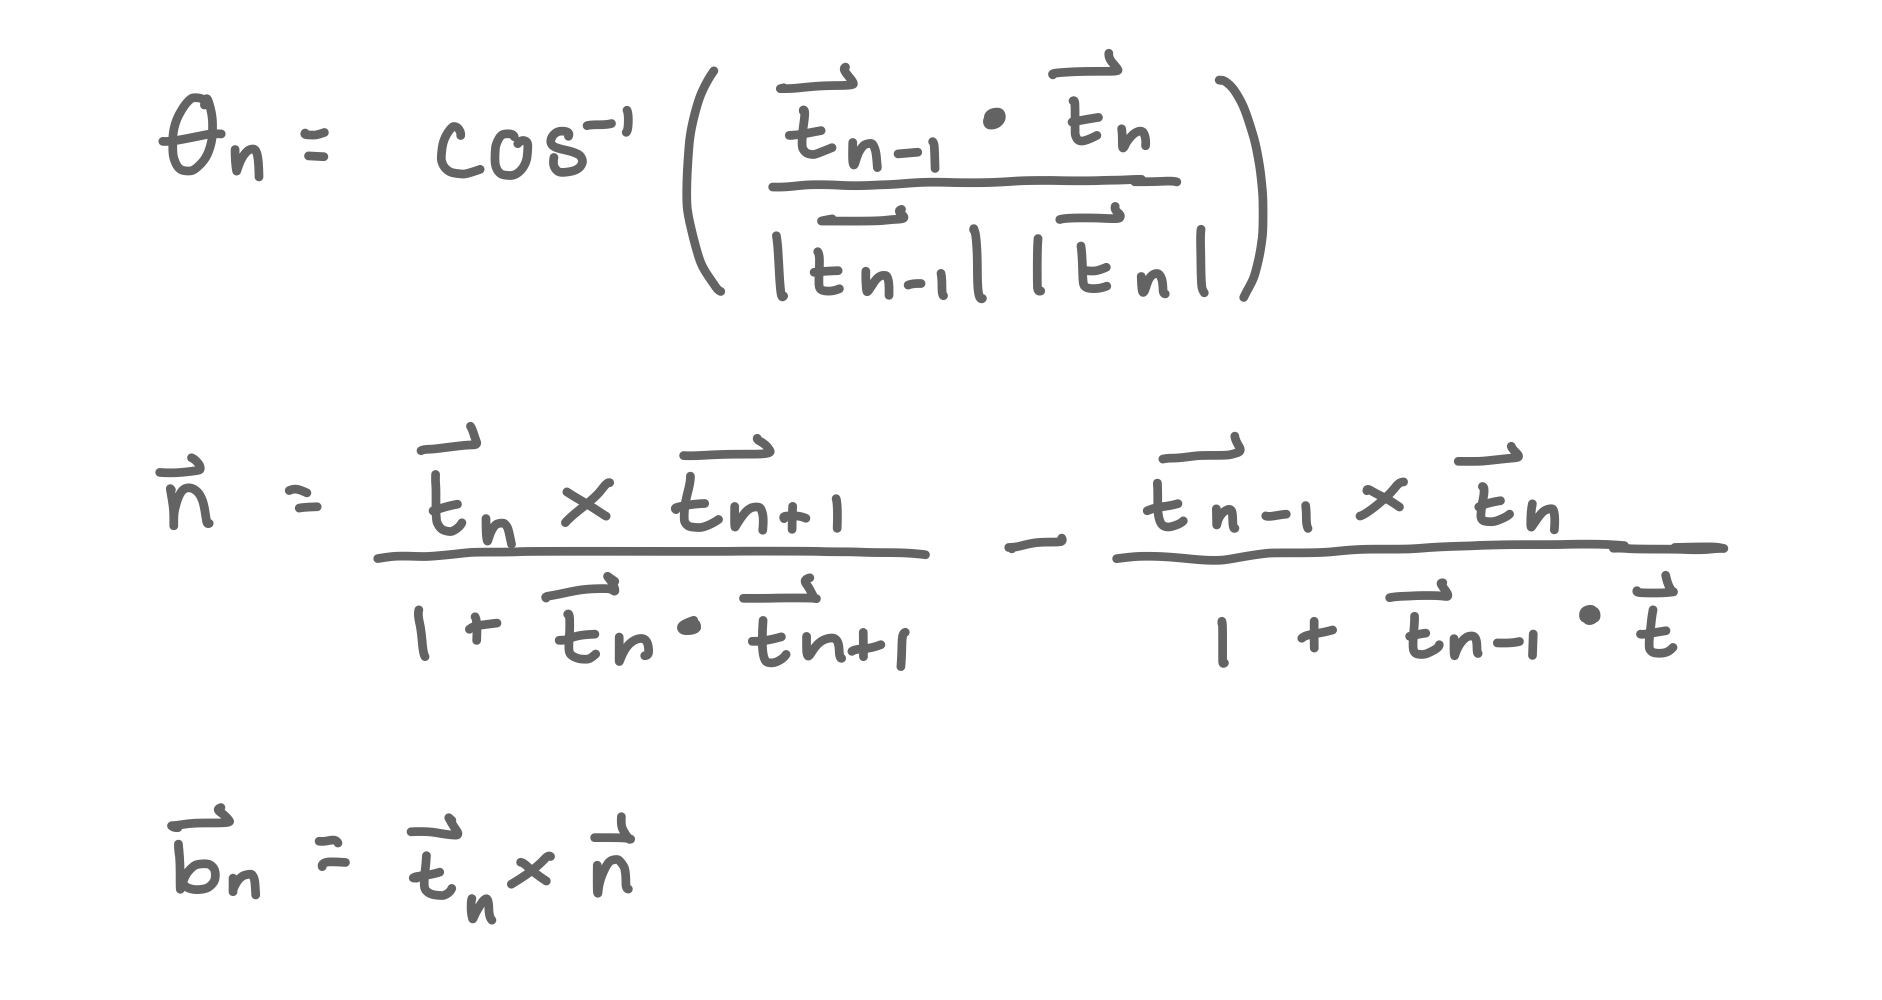 $\theta_n = \cos^{-1} \left( \frac{\overrightarrow{t_{n-1}} \cdot \overrightarrow{t_n}}{|\overrightarrow{t_{n-1}}| |\overrightarrow{t_n}|} \right)$
$\vec{n} = \frac{\overrightarrow{t_n} \times \overrightarrow{t_{n+1}}}{1 + \overrightarrow{t_n} \cdot \overrightarrow{t_{n+1}}} - \frac{\overrightarrow{t_{n-1}} \times \overrightarrow{t_n}}{1 + \overrightarrow{t_{n-1}} \cdot \vec{t}}$
$\overrightarrow{b_n} = \overrightarrow{t_n} \times \vec{n}$